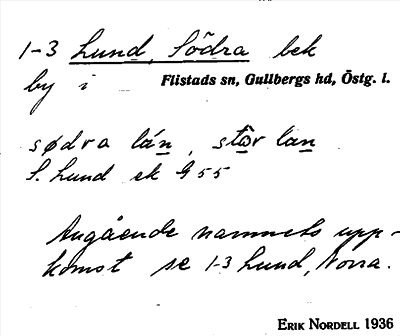 1-3 Lund, Södra bek
by i Flistads sn, Gullbergs hd, Östg. l.
sødra lán, stör lan
S. Lund ek G 55
Angående namnets upp-
komst se 1-3 Lund, Norra.
ERIK NORDELL 1936